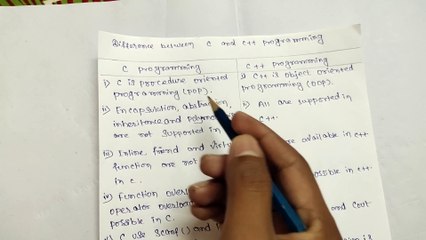 Difference between C and C++ programming
C programming
C++ programming
i) C is procedure oriented
programming (POP).
i) C++ is object oriented
programming (OOP).
ii) Encapsulation, abstraction,
inheritance and
are not supported in
ii) All are supported in
C++.
iii) Inline, friend and
function are not
in C.
are available in C++
iv) Function
operator
possible in C.
possible in C++.
v) C use scanf() and
and Cout